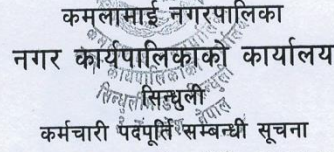 कमलामाई नगरपालिका
नगर कार्यपालिकाको कार्यालय
सिन्धुली
कर्मचारी पदपूर्ति सम्बन्धी सूचना